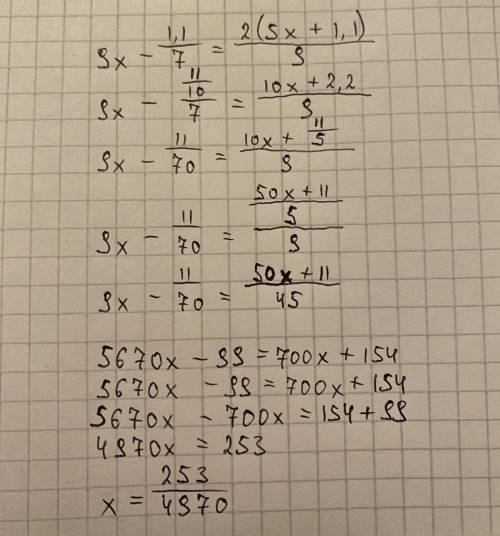 9x - 1,1/7 = 2(5x + 1,1)/9
9x - (11/10)/7 = (10x + 2,2)/9
9x - 11/70 = (10x + 11/5)/9
9x - 11/70 = ((50x + 11)/5)/9
9x - 11/70 = (50x + 11)/45
5670x - 99 = 700x + 154
5670x - 99 = 700x + 154
5670x - 700x = 154 + 99
4970x = 253
x = 253/4970